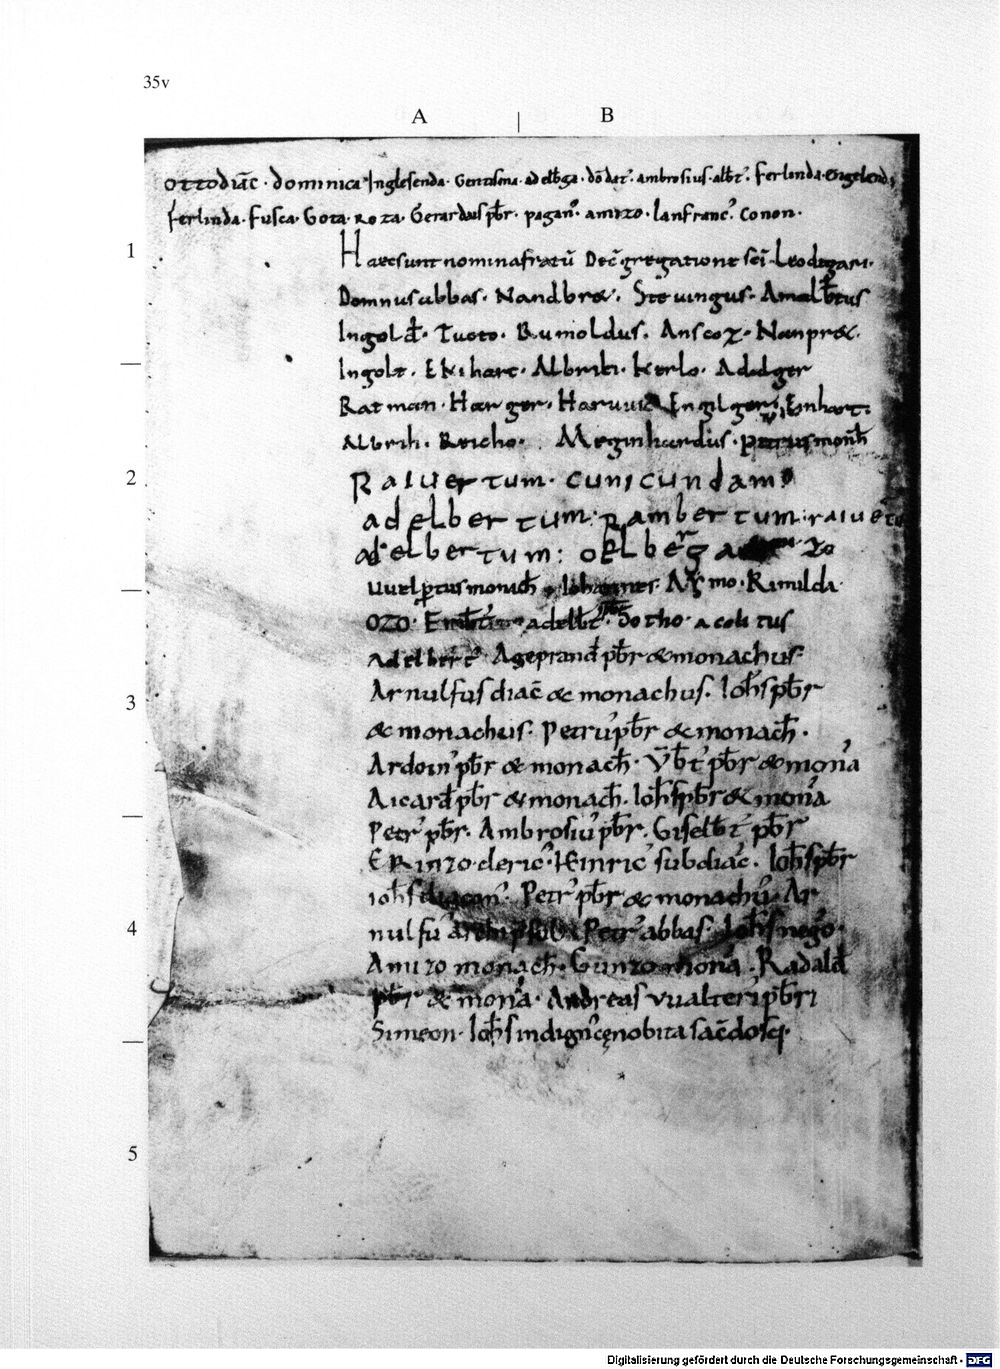 35v
A | B
ottodiac̄ · dominica · Inglesenda · Gentisma · adelb̄ga · dōdat᾽ · ambrosius · alb̄t᾽ · ferlinda · Engelend
ferlinda · fusca · Gota · Roza · Gerardus pb̄r · pagan᾽ · amizo · lanfranc᾽ · conon ·
1
Haec sunt nomina fratrū Dec̄gregatione sc̄i · Leodegarii ·
Domnus abbas · Nandbr& · Steuingus · Amalb̄tus
Ingold̄ · Tuoto · Rumoldus · Anscoz · Nanpr& ·
Ingolt · Ekihart · Albrih · Kerlo · Adalger
Ratman · Harger · Engilger · Einhart ·
Albrih · Reicho · Meginhardus · petrus monh̄
2
Raiuertum · cunicundam
adelbertum · Rambertum · raiuert
adelbertum :
uuelptus monach̄ · Iohannes · mo · Rimilda
ozo · adelb̄t᾽ · Sotho · acolitus
adelbert᾽ Ageprand̄ pb̄r & monachus ·
Arnulfus diac̄ & monachus · Ioh̄s pb̄r
3
& monachus · Petru᾽ pb̄r & monach̄ ·
Ardoin᾽ pb̄r & monach̄ · Vb̄t᾽ pb̄r & mona᾽
Aicard᾽ pb̄r & monach̄ · Ioh̄s pb̄r & mona᾽
Petr᾽ pb̄r · Ambrosiu᾽ pb̄r · Giselb̄t᾽ pb̄r
Erinzo · cleric᾽ · Heinric᾽ subdiac̄ · Ioh̄s pb̄r
ioh̄s diacon᾽ · Petr᾽ pb̄r & monachu᾽ · Ar
4
nulfu᾽ Petr᾽ abbas · Ioh̄s nego᾽ ·
Amizo monach̄ · Gunzo mona᾽ · Radald̄
pb̄r & mona᾽ · Andreas vualteri᾽ pb̄ri
Simeon · Ioh̄s indign᾽ cęnobita sac̄dos
5
Digitalisierung gefördert durch die Deutsche Forschungsgemeinschaft - DFG